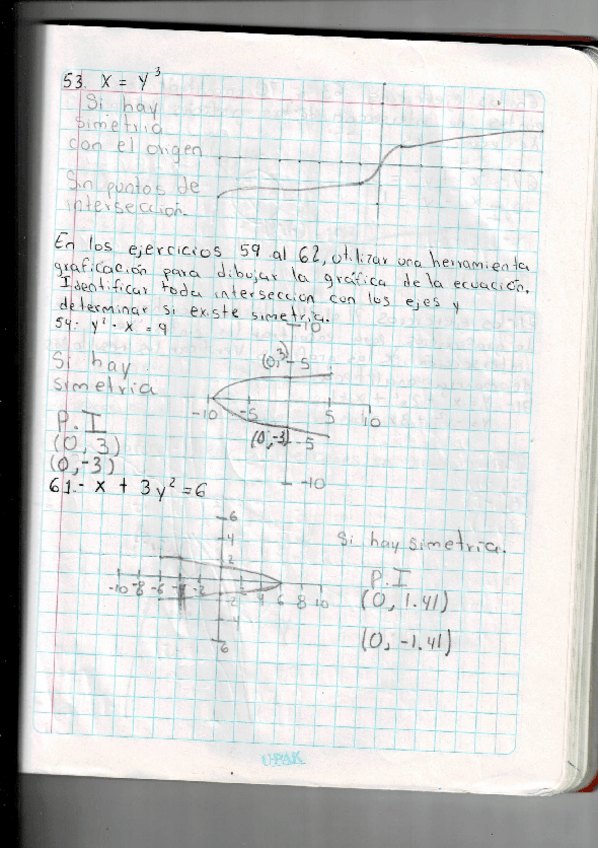 53. x = y³
Si hay
simetria
con el origen
Sin puntos de
intersección.
En los ejercicios 59 al 62, utilizar una herramienta
graficación para dibujar la gráfica de la ecuación.
Identificar toda interseccion con los ejes y
determinar si existe simetria.
-10
59.- y² - x = 9
(0, 3)
5
Si hay
simetria
-10 -5 5 10
P.I
(0, 3)
(0, -3)
(0, -3) -5
-10
61.- x + 3y² = 6
6
4
2
Si hay simetria.
-10 -8 -6 -2 2 4 6 8 10
-2
-4
6
P.I
(0, 1.41)
(0, -1.41)
UPAK